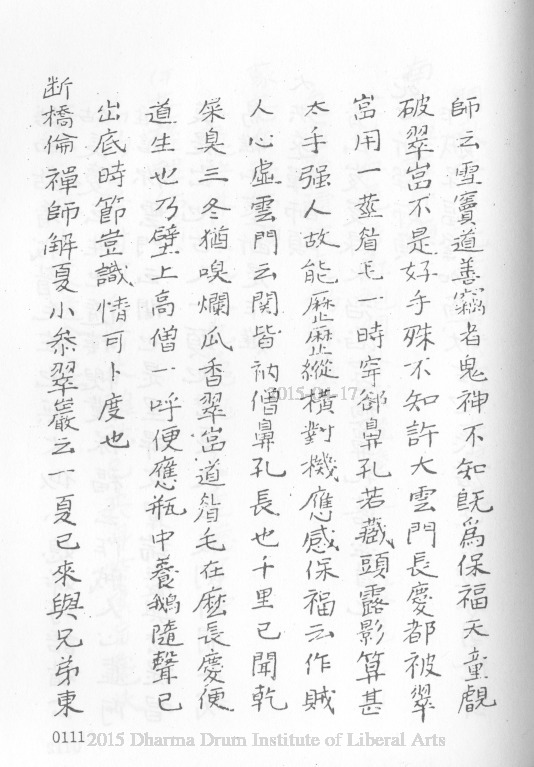 師云雪竇道善竊者鬼神不知既為保福天童覷
破翠嵓不是好手殊不知許大雲門長慶都被翠
嵓用一莖眉毛一時穿卻鼻孔若藏頭露影算甚
太手强人故能歷歷縱橫對機應感保福云作賊
人心虛雲門云関皆衲僧鼻孔長也千里已聞乾
屎臭三冬猶嗅爛瓜香翠嵓道眉毛在麼長慶便
道生也乃壁上高僧一呼便應瓶中養鵝隨聲已
出底時節豈識情可卜度也
断橋倫禪師解夏小叅翠巖云一夏已來與兄弟東
2015-04-17
0111
2015 Dharma Drum Institute of Liberal Arts